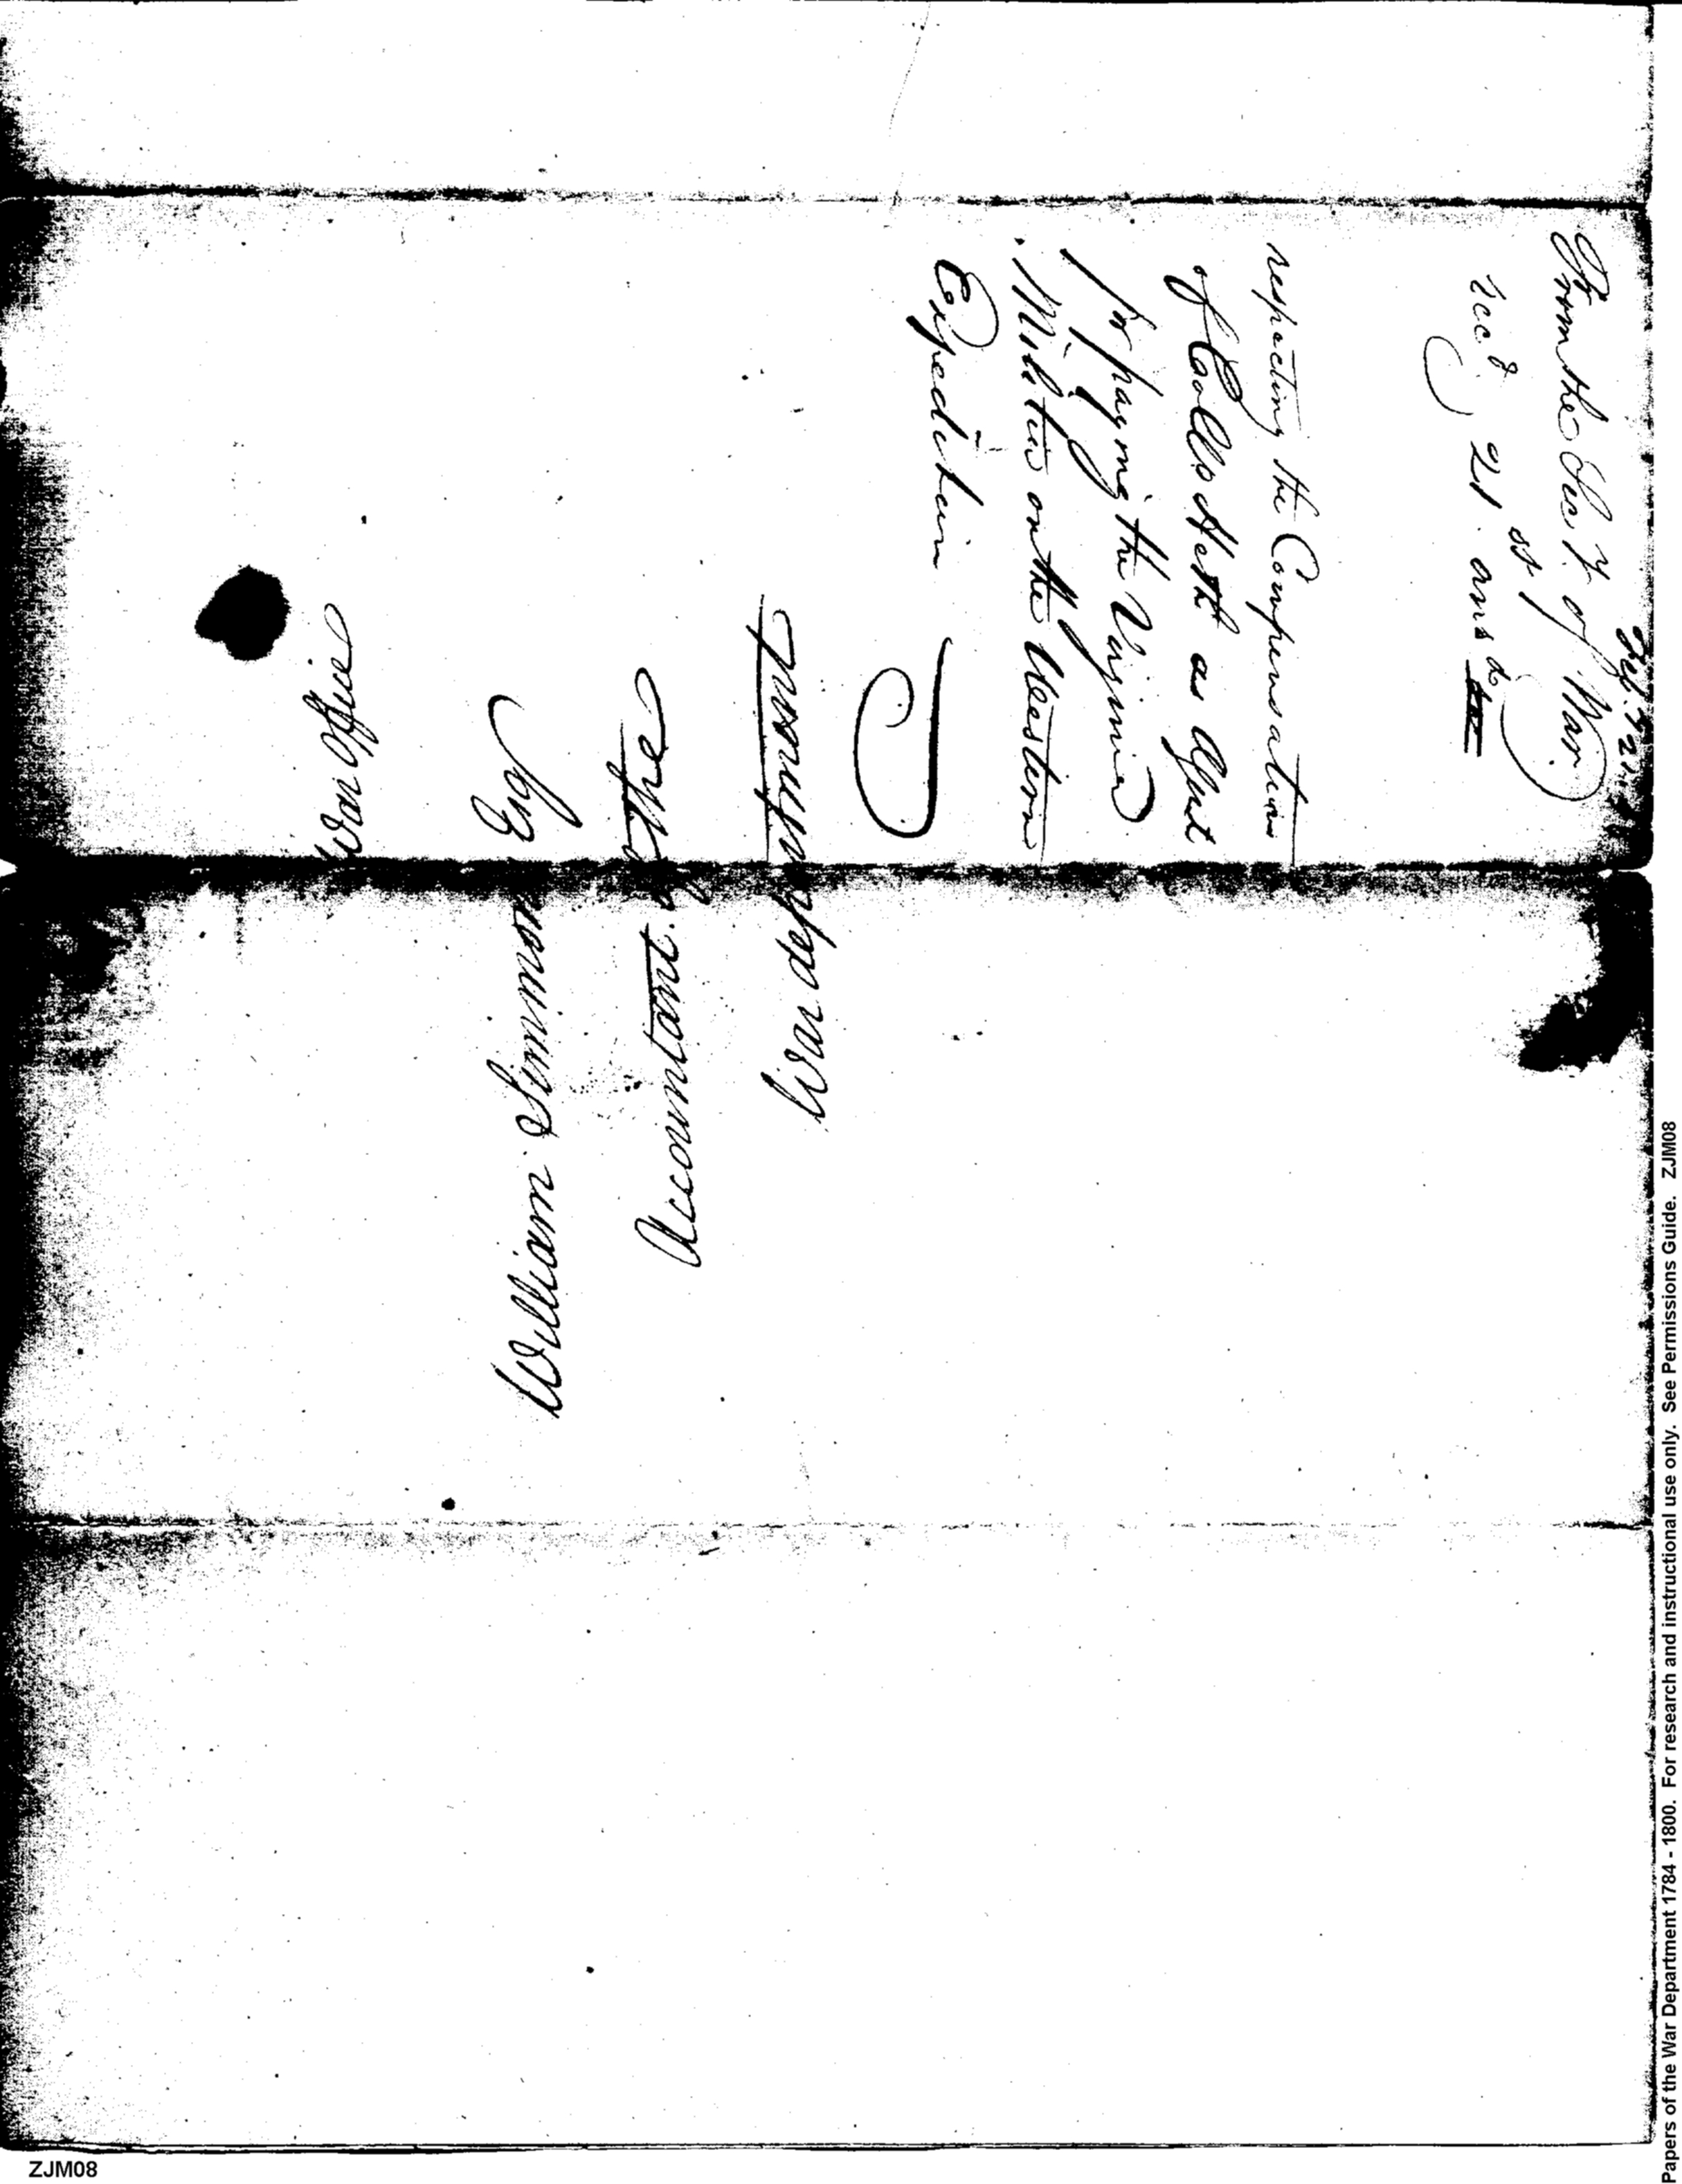 From the Secy. of War.
recd 21st ansd do
respecting the Compensation
of Collo Heth as Agent
for paying the Virginia
Militia on the Western
Expedition
War Office
William Simmons Esq
Accountant of the
War department
Papers of the War Department 1784 - 1800. For research and instructional use only. See Permissions Guide. ZJM08
ZJM08